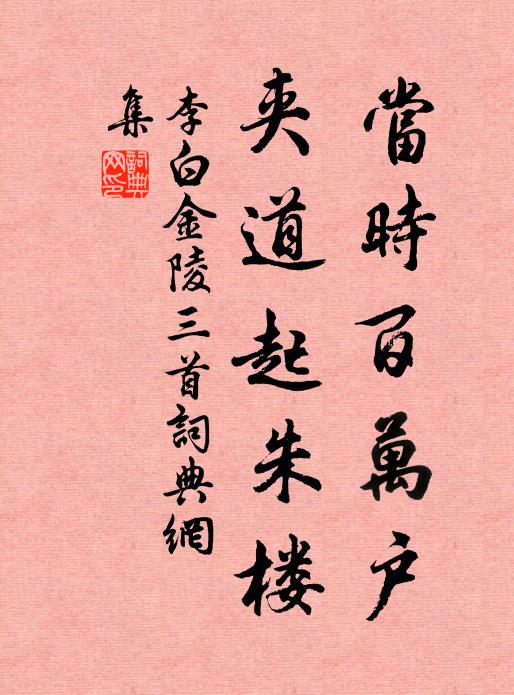 當時百萬户
夾道起朱楼
李白金陵三首詞典網
集
詞典
网印